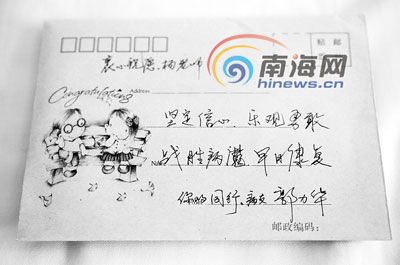 贴 邮
衷心祝愿、杨老师
南海网
hinews.cn
Congratulations Address
坚定信心、乐观勇敢
战胜病魔 早日康复
你的同行、病友 郭力华
邮政编码: